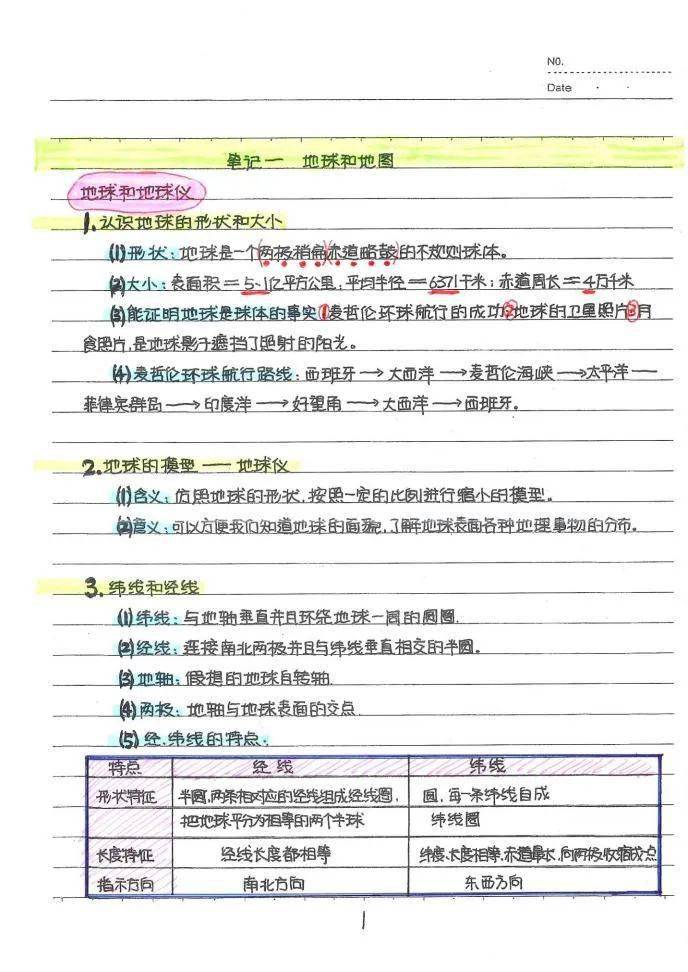 NO.
Date
笔记一 地球和地图
地球和地球仪
1.认识地球的形状和大小
(1)形状:地球是一个(两极稍扁)(赤道略鼓)的不规则球体。
(2)大小:表面积=5.1亿平方公里,平均半径=6371千米;赤道周长=4万千米
(3)能证明地球是球体的事实①麦哲伦环球航行的成功②地球的卫星照片③月
食照片,是地球影子遮挡了照射的阳光。
(4)麦哲伦环球航行路线:西班牙→大西洋→麦哲伦海峡→太平洋—
菲律宾群岛→印度洋→好望角→大西洋→西班牙。
2.地球的模型——地球仪
(1)含义:仿照地球的形状,按照一定的比例进行缩小的模型。
(2)意义:可以方便我们知道地球的面貌,了解地球表面各种地理事物的分布。
3.纬线和经线
(1)纬线:与地轴垂直并且环绕地球一周的圆圈.
(2)经线:连接南北两极并且与纬线垂直相交的半圆。
(3)地轴:假想的地球自转轴
(4)两极:地轴与地球表面的交点.
(5)经.纬线的特点.
特点 经线 纬线
形状特征 半圆,两条相对应的经线组成经线圈, 圆,每一条纬线自成
把地球平分为相等的两个半球 纬线圈
长度特征 经线长度都相等 纬度、长度相等,赤道最长,向两极收缩成点
指示方向 南北方向 东西方向
1